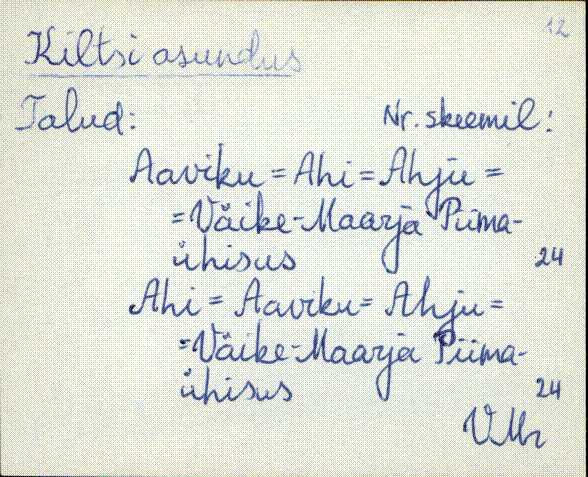 12
Kiltsi asundus
Talud: Nr. skeemil:
Aaviku = Ahi = Ahju =
= Väike-Maarja Piima-
ühisus 24
Ahi = Aaviku = Ahju =
= Väike-Maarja Piima-
ühisus 24
VMr